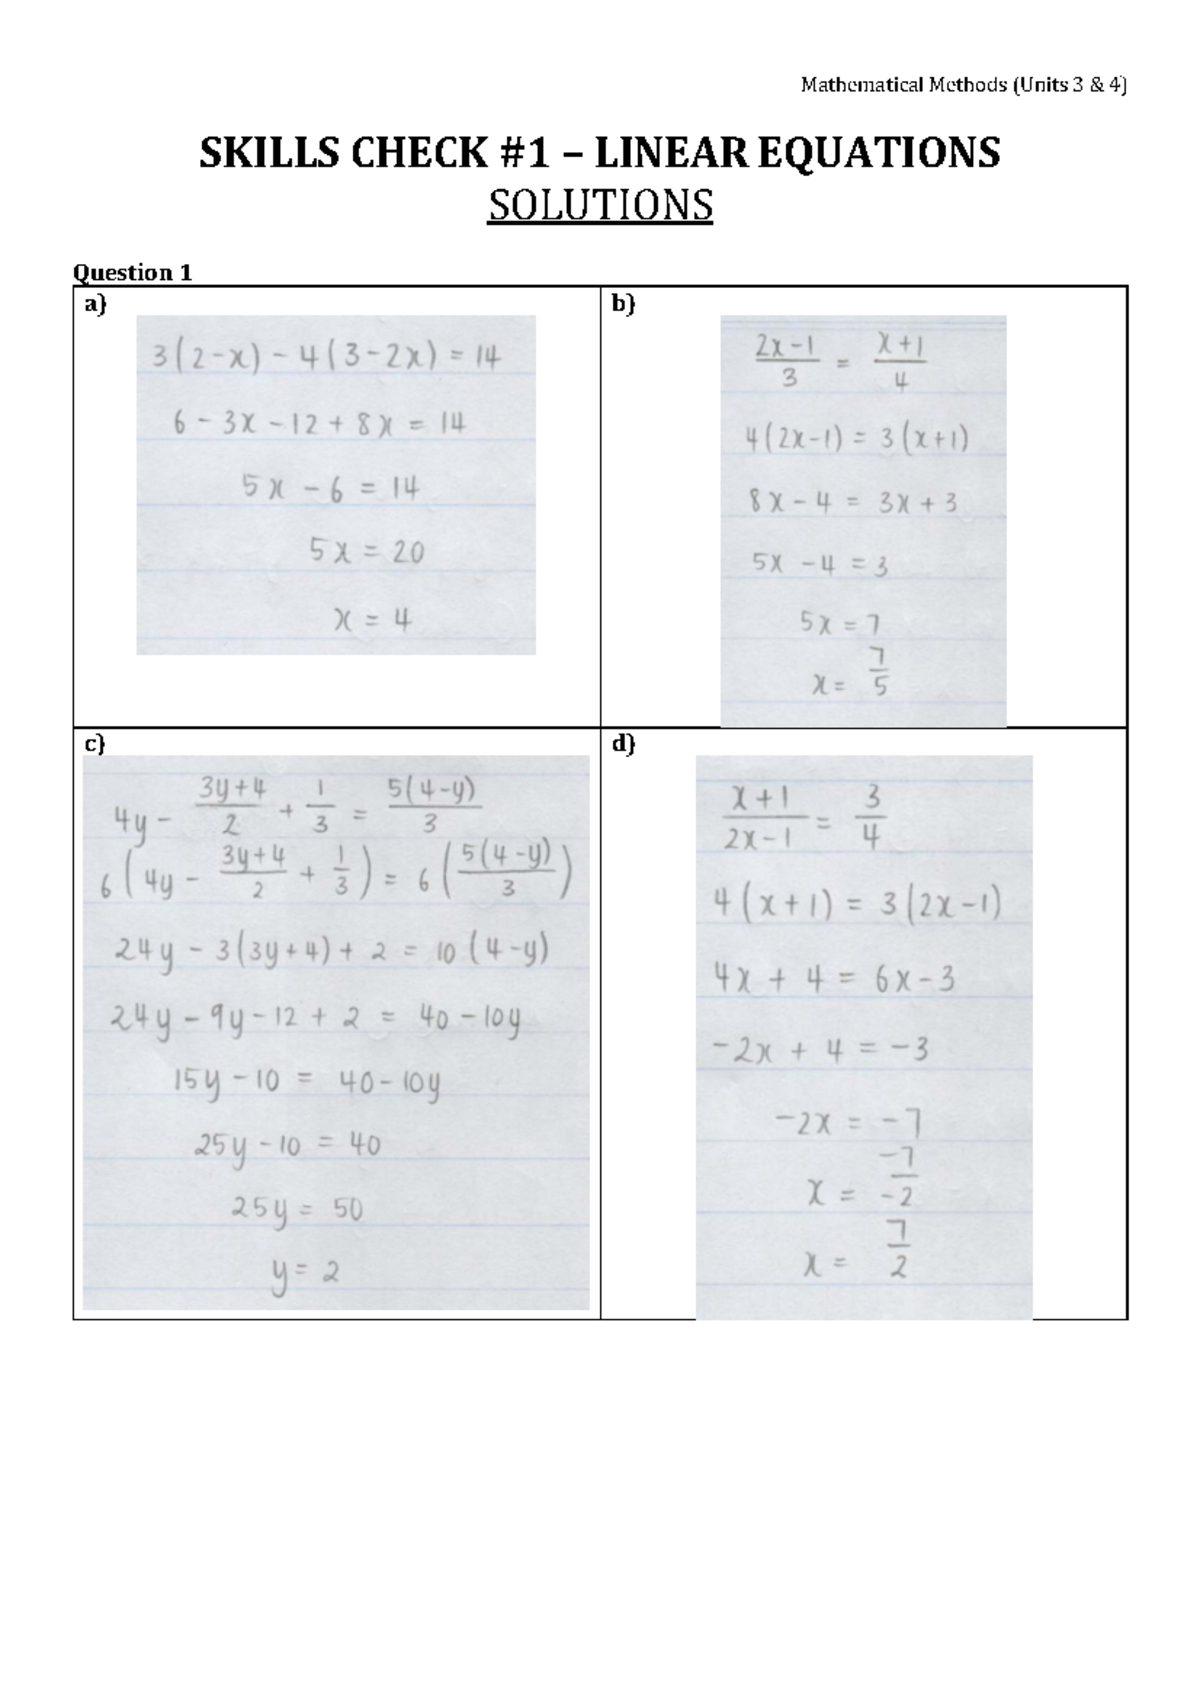 Mathematical Methods (Units 3 & 4)
SKILLS CHECK #1 – LINEAR EQUATIONS
SOLUTIONS
Question 1
a)
3(2-x) - 4(3-2x) = 14
6 - 3x - 12 + 8x = 14
5x - 6 = 14
5x = 20
x = 4
b)
(2x-1)/3 = (x+1)/4
4(2x-1) = 3(x+1)
8x - 4 = 3x + 3
5x - 4 = 3
5x = 7
x = 7/5
c)
4y - (3y+4)/2 + 1/3 = 5(4-y)/3
6(4y - (3y+4)/2 + 1/3) = 6(5(4-y)/3)
24y - 3(3y+4) + 2 = 10(4-y)
24y - 9y - 12 + 2 = 40 - 10y
15y - 10 = 40 - 10y
25y - 10 = 40
25y = 50
y = 2
d)
(x+1)/(2x-1) = 3/4
4(x+1) = 3(2x-1)
4x + 4 = 6x - 3
-2x + 4 = -3
-2x = -7
x = -7/-2
x = 7/2